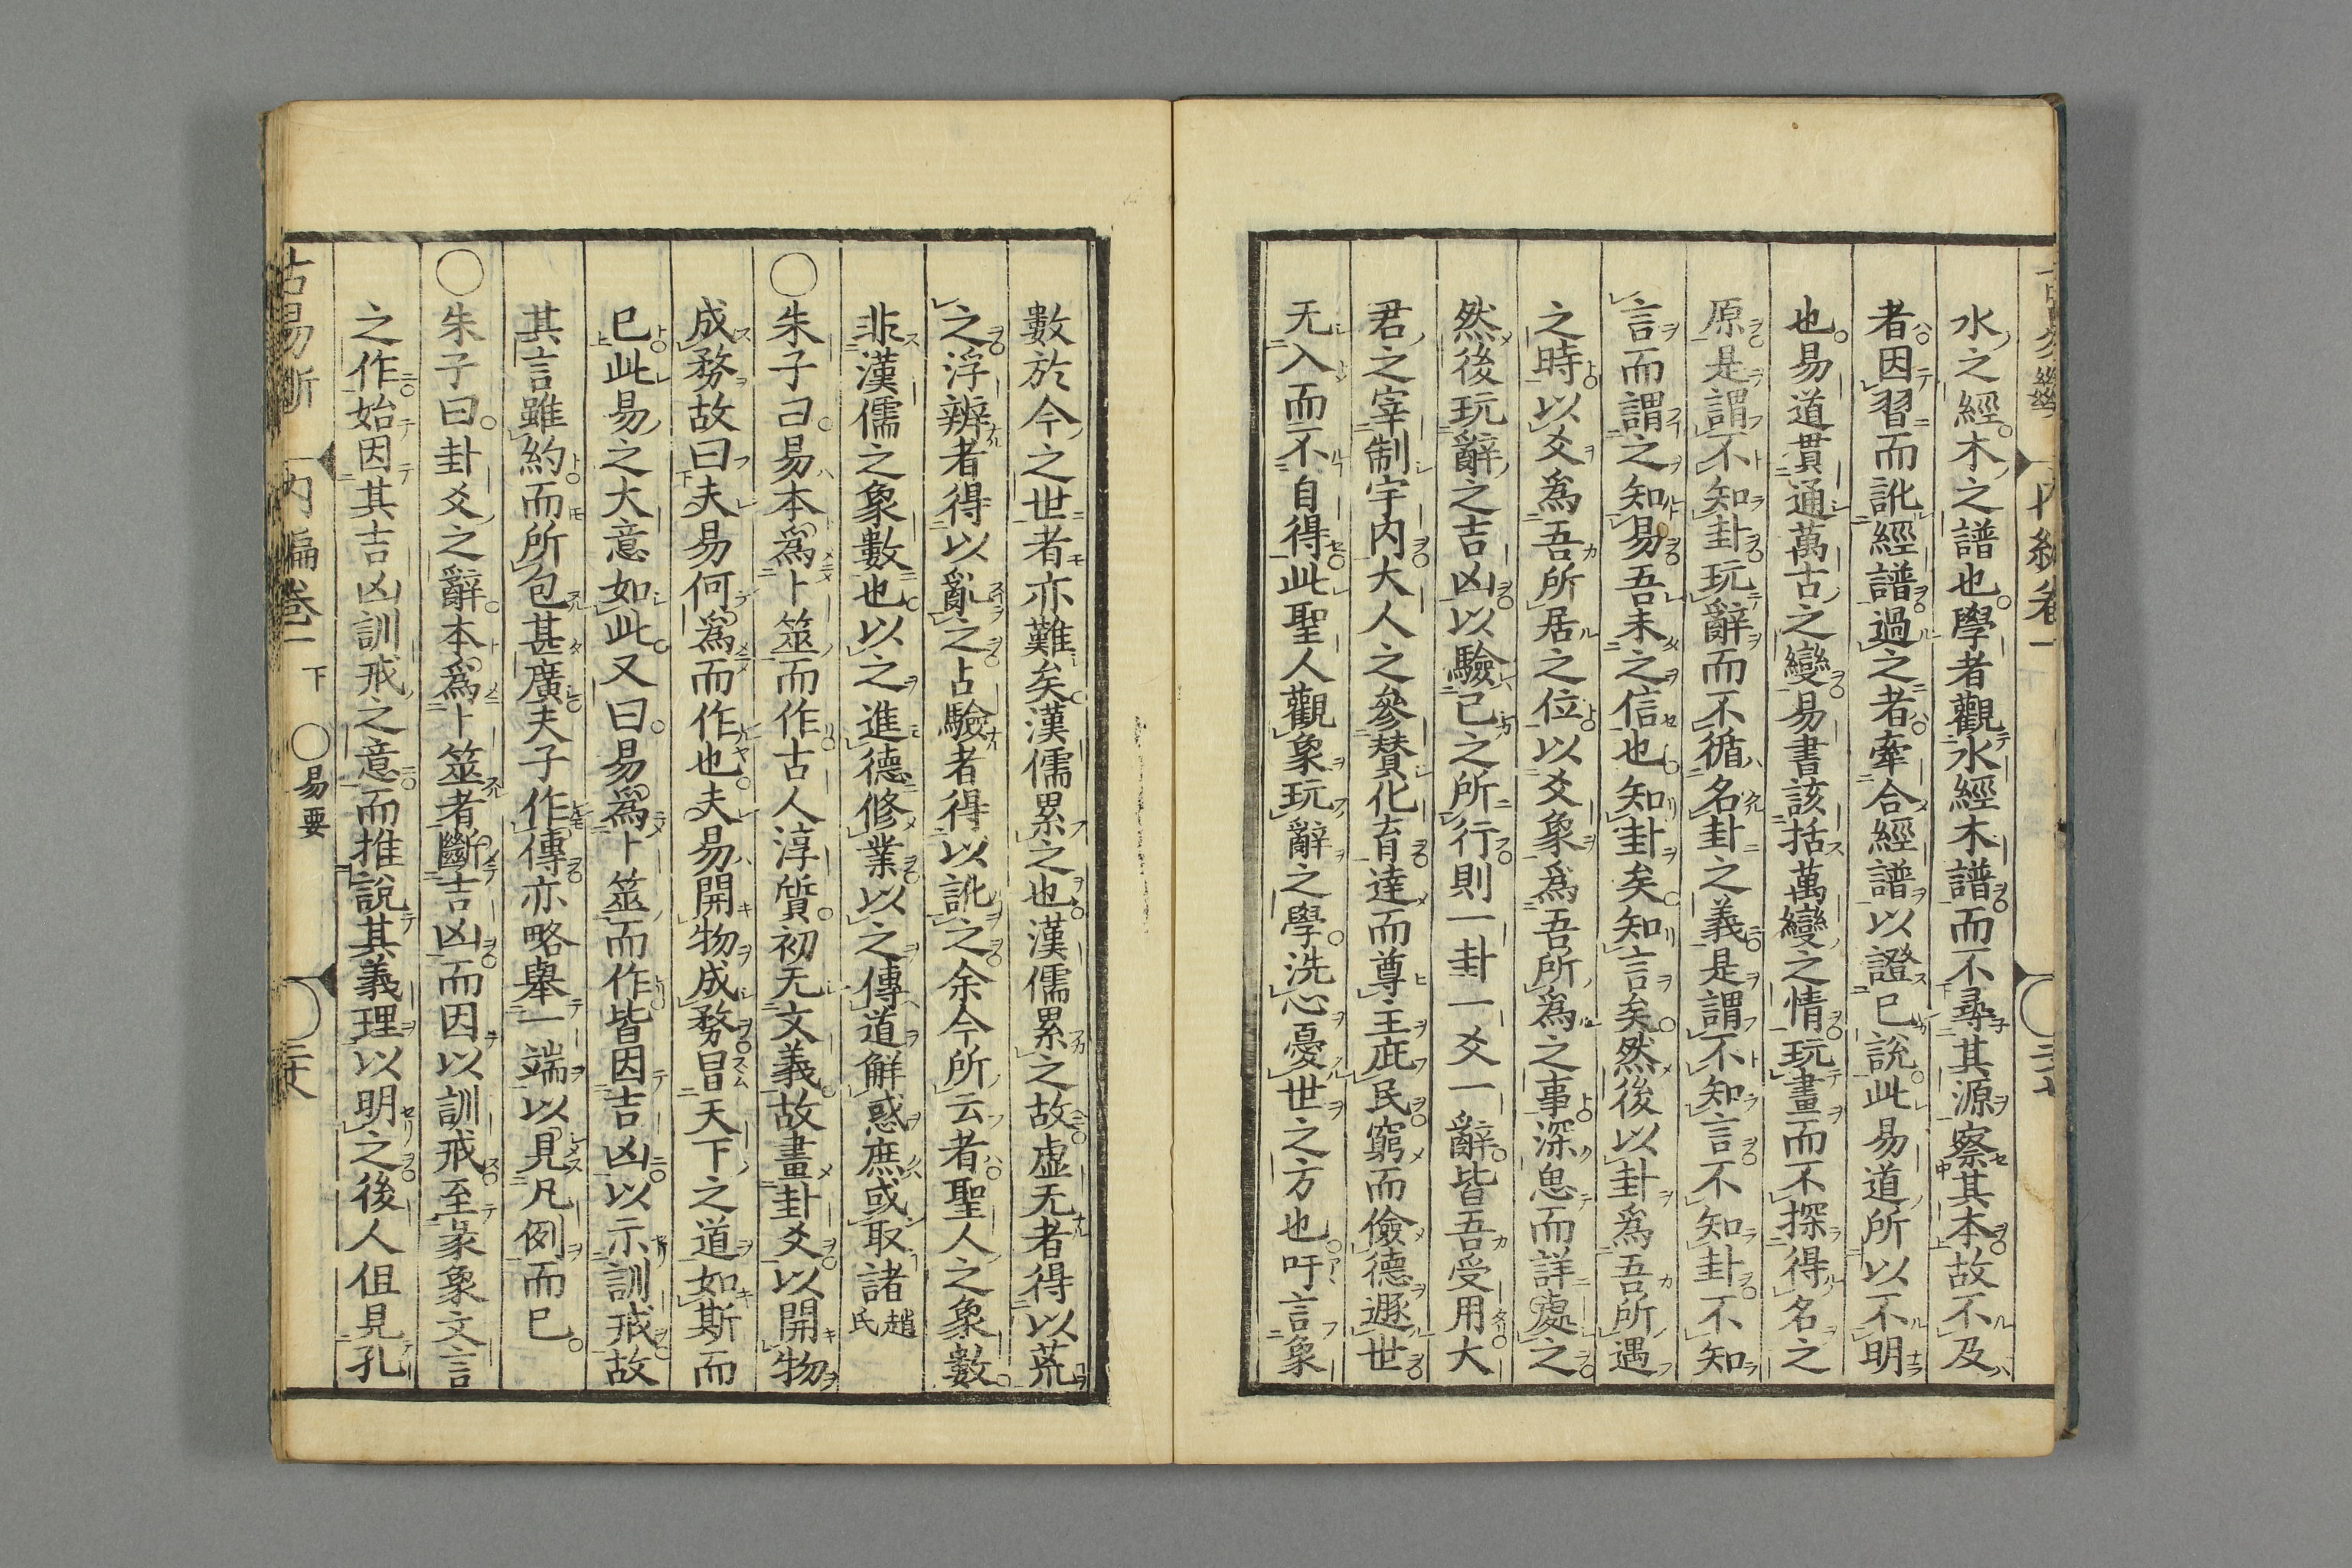 水之經木之譜也學者觀水經木譜而不尋其源察其本故不及
者因習而訛經譜過之者牽合經譜以證已說此易道所以不明
也易道貫通萬古之變易書該括萬變之情玩畫而不探得名之
原是謂不知卦玩辭而不循名卦之義是謂不知言不知卦不知
言而謂之知易吾未之信也知卦矣知言矣然後以卦爲吾所遇
之時以爻爲吾所居之位以爻象爲吾所爲之事深思而詳處之
然後玩辭之吉凶以驗已之所行則一卦一爻一辭皆吾受用大
君之宰制宇內大人之參賛化育達而尊主庇民窮而儉德遯世
无入而不自得此聖人觀象玩辭之學洗心憂世之方也吁言象
數於今之世者亦難矣漢儒累之也漢儒累之故虛无者得以荒
之浮辨者得以亂之占驗者得以訛之余今所云者聖人之象數
非漢儒之象數也以之進德修業以之傳道解惑庶或取諸趙氏
○朱子曰易本爲卜筮而作古人淳質初无文義故畫卦爻以開物
成務故曰夫易何爲而作也夫易開物成務冒天下之道如斯而
已此易之大意如此又曰易爲卜筮而作皆因吉凶以示訓戒故
其言雖約而所包甚廣夫子作傳亦略舉一端以見凡例而已
○朱子曰卦爻之辭本爲卜筮者斷吉凶而因以訓戒至彖象文言
之作始因其吉凶訓戒之意而推說其義理以明之後人但見孔
古易斷 內編卷一 下 ○易要